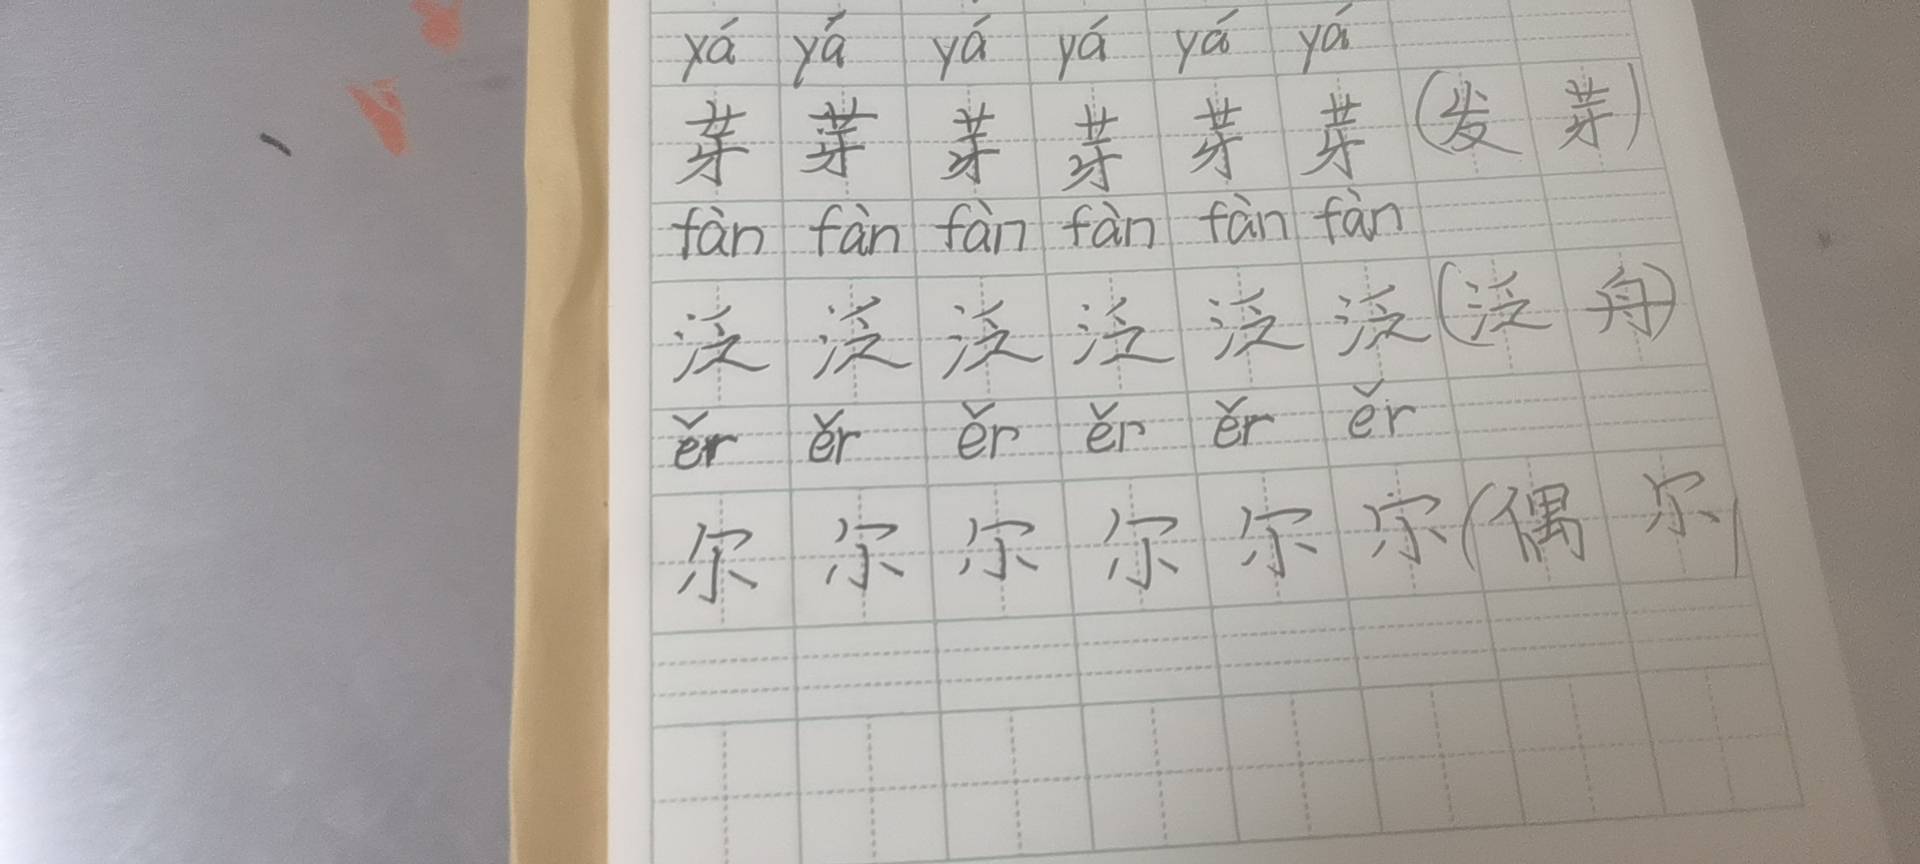 yá yá yá yá yá yá
芽 芽 芽 芽 芽 芽 (发 芽)
fàn fàn fàn fàn fàn fàn
泛 泛 泛 泛 泛 泛 (泛 舟)
ěr ěr ěr ěr ěr ěr
尔 尔 尔 尔 尔 尔 (偶 尔)